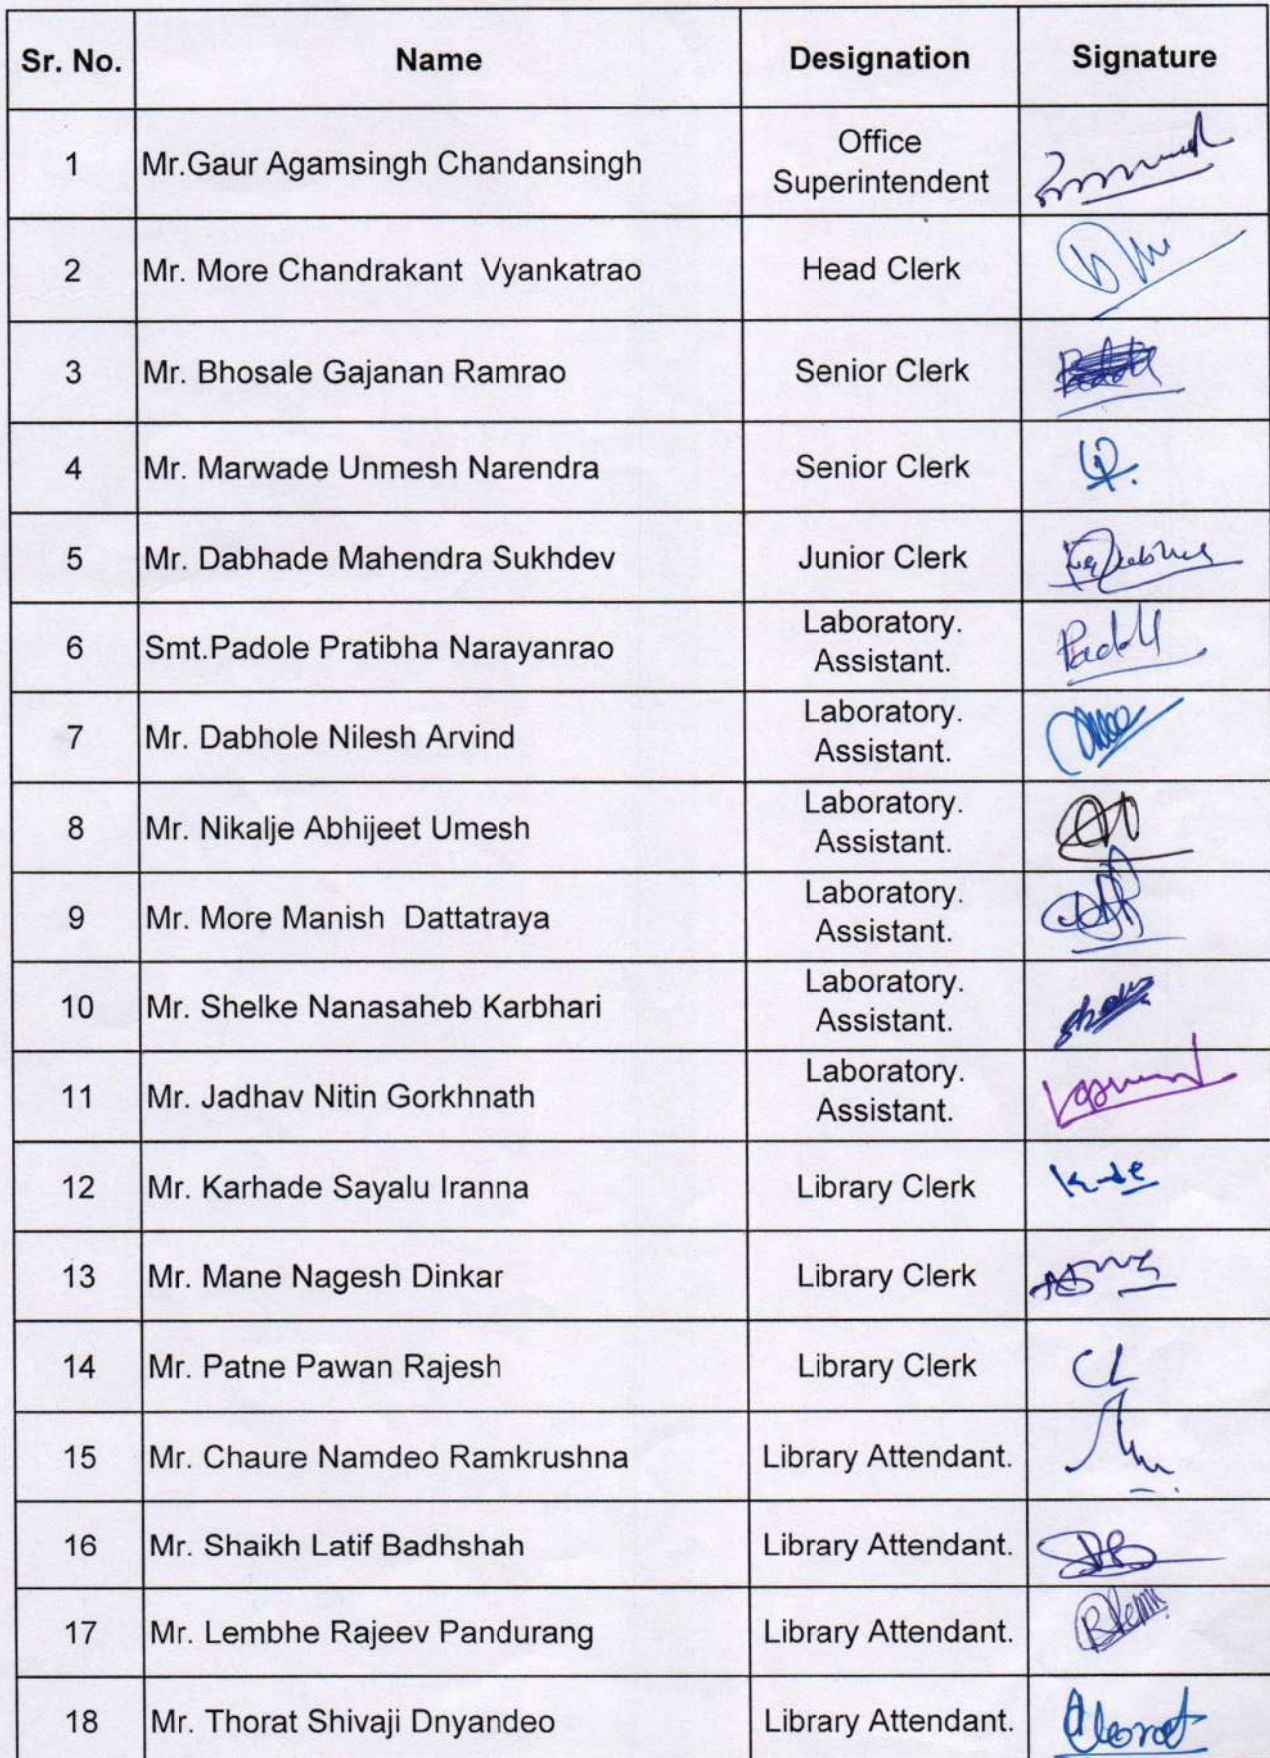 Sr. No. Name Designation Signature
1 Mr.Gaur Agamsingh Chandansingh Office
Superintendent
2 Mr. More Chandrakant Vyankatrao Head Clerk
3 Mr. Bhosale Gajanan Ramrao Senior Clerk
4 Mr. Marwade Unmesh Narendra Senior Clerk
5 Mr. Dabhade Mahendra Sukhdev Junior Clerk
6 Smt.Padole Pratibha Narayanrao Laboratory.
Assistant.
7 Mr. Dabhole Nilesh Arvind Laboratory.
Assistant.
8 Mr. Nikalje Abhijeet Umesh Laboratory.
Assistant.
9 Mr. More Manish Dattatraya Laboratory.
Assistant.
10 Mr. Shelke Nanasaheb Karbhari Laboratory.
Assistant.
11 Mr. Jadhav Nitin Gorkhnath Laboratory.
Assistant.
12 Mr. Karhade Sayalu Iranna Library Clerk
13 Mr. Mane Nagesh Dinkar Library Clerk
14 Mr. Patne Pawan Rajesh Library Clerk CL
15 Mr. Chaure Namdeo Ramkrushna Library Attendant.
16 Mr. Shaikh Latif Badhshah Library Attendant.
17 Mr. Lembhe Rajeev Pandurang Library Attendant.
18 Mr. Thorat Shivaji Dnyandeo Library Attendant.